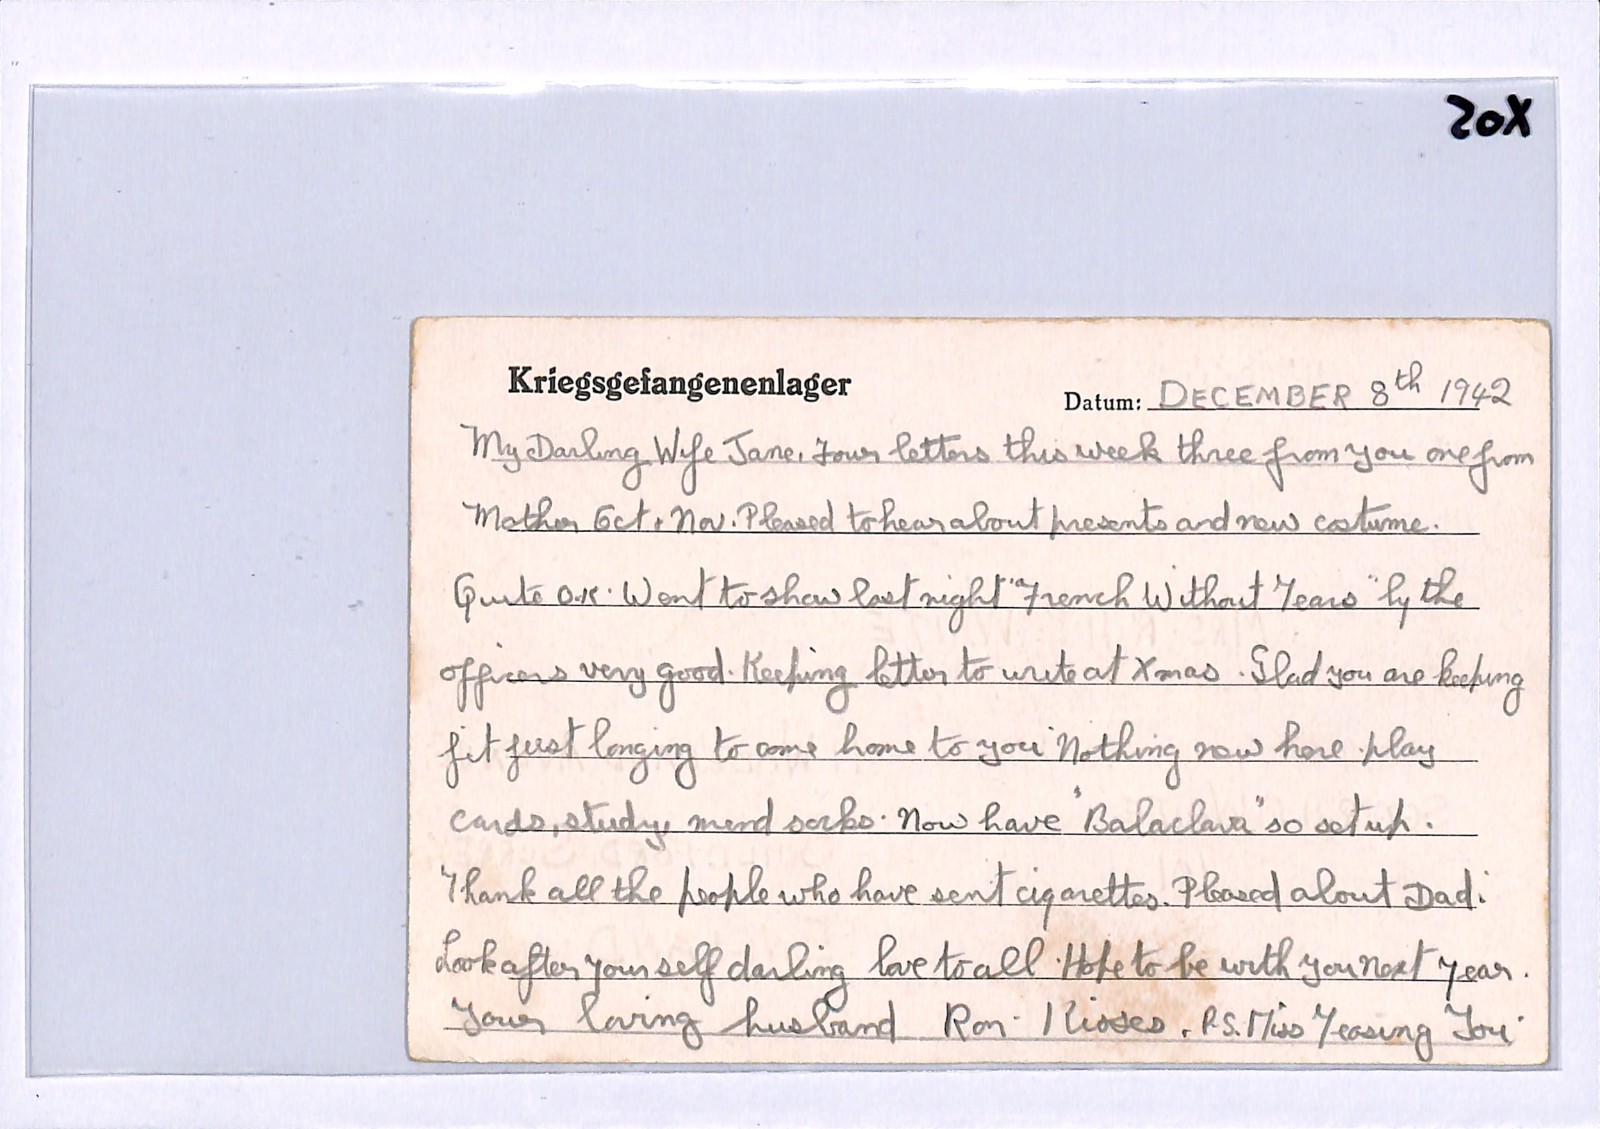 20X
Kriegsgefangenenlager
Datum: DECEMBER 8th 1942
My Darling Wife Jane. Four letters this week three from you one from
Mother Oct & Nov. Pleased to hear about presents and new costume.
Quite O.K. Went to show last night "French Without Tears" by the
officers very good. Keeping letter to write at Xmas. Glad you are keeping
fit just longing to come home to you Nothing new here play
cards, study, mend socks. Now have "Balaclava" so set up.
Thank all the people who have sent cigarettes. Pleased about Dad.
Look after yourself darling love to all. Hope to be with you next year.
Your loving husband Ron. Kisses. P.S. Miss Teasing You